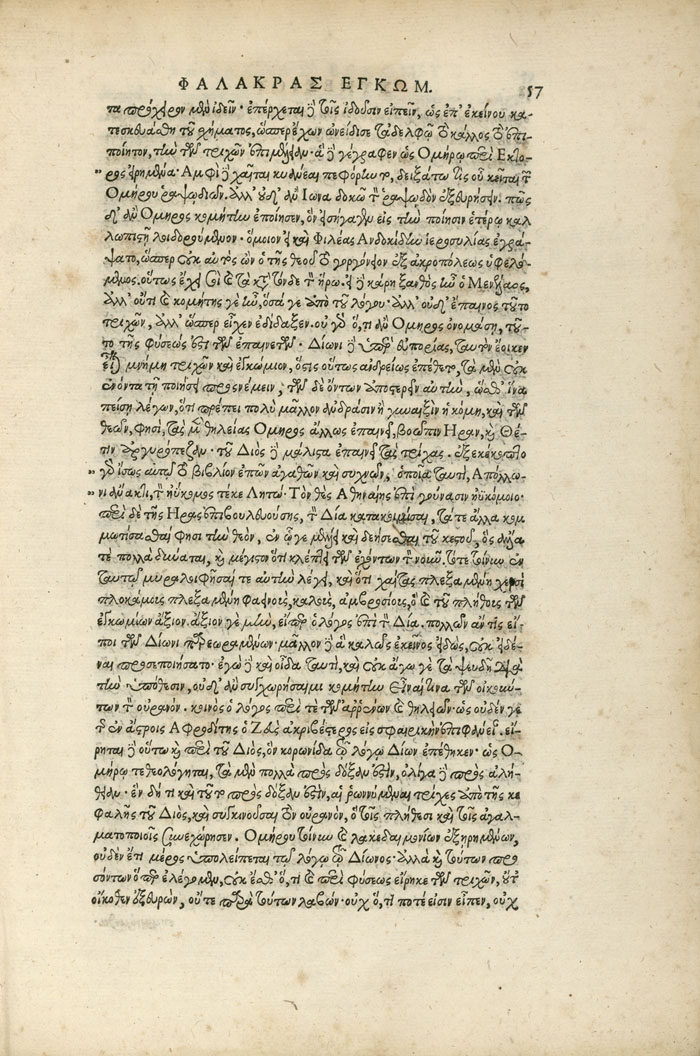 ΦΑΛΑΚΡΑΣ ΕΓΚΩΜ. 57
τα πρόχειρον μὲν ἰδεῖν· ἐπέρχεται δὲ τοῖς ἰδοῦσιν εἰπεῖν, ὡς ἐπ' ἐκείνου κα-
τεσκευάσθη τοῦ σχήματος, ὥσπερ ἔχων ὠνείδισε τἀδελφῷ τὸ κάλλος τὸ ἐπι-
ποίητον, τὴν τῶν τριχῶν ἐπιμέλειαν· ἃ δὲ γέγραφεν ὡς Ὁμήρῳ περὶ Ἕκτο-
ρος εἰρημένα· Ἀμφὶ δὲ χαῖται κυάνεαι πεφόρηντο, δειξάτω τις οὗ κεῖνται τῶν
Ὁμήρου ῥαψῳδιῶν. ἀλλ' οὐδ' ἂν Ἴωνα δοκῶ τὸν ῥαψῳδὸν ἐξευρήσειν. πῶς
δ' ἂν Ὅμηρος κομήτην ἐποίησεν, ὃν εἰσήγαγεν εἰς τὴν ποίησιν ἑτέρῳ καλ
λωπιστῇ λοιδορούμενον· ὅμοιον εἰ καὶ Φιλέας Ἀνδοκίδην ἱεροσυλίας ἐγρά-
ψατο, ὥσπερ οὐκ αὐτὸς ὢν ὁ τῆς θεοῦ τὸ γοργόνειον ἐξ ἀκροπόλεως ὑφελό-
μενος. οὕτως ἔχει σοι καὶ τὰ κατὰ τόνδε τὸν ἥρω. εἰ δὲ κάρη ξανθὸς ἦν ὁ Μενέλαος,
ἀλλ' οὔτι καὶ κομήτης γε ἦν, ὅσα γε ὑπὸ τοῦ λόγου· ἀλλ' οὐδ' ἔπαινος τοῦτο
τριχῶν, ἀλλ' ὥσπερ εἶχεν ἐδίδαξεν. οὐ γὰρ ὅ,τι ἂν Ὅμηρος ὀνομάσῃ, τοῦ-
το τῆς φύσεώς ἐστι τῶν ἐπαινετῶν. Δίωνι δὲ ὑπὲρ εὐπορίας, ταυτὸν ἔοικεν
εἶναι μνήμη τριχῶν καὶ ἐγκώμιον, ὅστις οὕτως ἀνδρείως ἐπέθετο, τὰ μὲν οὐκ
ἐνόντα τῇ ποιήσει προσνέμειν, τῶν δὲ ὄντων ἀποστερεῖν αὐτὴν, ὥσθ' ἵνα
πείσῃ λέγων, ὅτι πρέπει πολὺ μᾶλλον ἀνδράσιν ἢ γυναιξὶν ἡ κόμη, καὶ τῶν
θεῶν, φησὶ, τὰς μὲν θηλείας Ὅμηρος ἄλλως ἐπαινεῖ, βοῶπιν Ἥραν, καὶ Θέ-
τιν ἀργυρόπεζαν· τοῦ Διὸς δὲ μάλιστα ἐπαινεῖ τὰς τρίχας. ἐξεκέκοπτο
γὰρ ἴσως αὐτῷ τὸ βιβλίον ἐπῶν ἀγαθῶν καὶ συχνῶν, ὁποῖα ταυτὶ, Ἀπόλλω-
νι ἄνακτι, τὸν ἠΰκομος τέκε Λητώ· Τὸν θὲς Ἀθηναίης ἐπὶ γούνασιν ἠϋκόμοιο·
περὶ δὲ τῆς Ἥρας ἐπιβουλευούσης, τὸν Δία κατακοιμίσαι, τά τε ἄλλα κομ
μωτίσασθαί φησι τὴν θεὸν, ἐν ᾧ γε μέλλει καὶ δεήσεσθαι τοῦ κεστοῦ, ὃς ἄλλα
τὲ πολλὰ δύναται, καὶ μέγιστον ὅτι κλέπτει τῶν ἐχόντων τὸν νοῦν. τότε τοίνυν ἐν
ταυτῷ μυραλοιφῆσαί τε αὐτὴν λέγει, καὶ ὅτι χαίτας πλεξαμένη χερσὶ
πλοκάμους πλεξαμένη φαεινοὺς, καλοὺς, ἀμβροσίους, ὃ καὶ τοῦ πλήθους τῶν
ἐγκωμίων ἄξιον. ἄξιον γε μὴν, εἴπερ ὁ λόγος ἐπὶ τὸν Δία. πολλῶν ἄν τις εἴ-
ποι τῶν Δίωνι παρεωραμένων· μᾶλλον δὲ ἃ καλῶς ἐκεῖνος εἰδὼς, οὐκ εἰδέ-
ναι προσεποιήσατο· ἐγὼ δὲ καὶ οἶδα ταυτὶ, καὶ οὐκ ἄγω γε τὰ ψευδῆ παρὰ
τὴν ὑπόθεσιν, οὐδ' ἂν συγχωρήσαιμι κομήτην εἶναί τινα τῶν οἰκούν-
των τὸν οὐρανόν. κοινὸς ὁ λόγος περὶ τε τῶν ἀρρένων καὶ θηλειῶν· ὡς οὐδέν γε
τῆς ἐν ἄστροις Ἀφροδίτης ὁ Ζεὺς ἀκριβέστερος εἰς σφαιρικὴν ἐπιφάνειαν. εἴ-
ρηται δὲ οὕτω καὶ περὶ τοῦ Διὸς, ὃν κορωνίδα τῷ λόγῳ Δίων ἐπέθηκεν· ὡς Ὁ-
μήρῳ τεθεολόγηται, τὰ μὲν πολλὰ πρὸς δόξαν ἐστὶν, ὀλίγα δὲ πρὸς ἀλή-
θειαν· ἓν δή τι καὶ τοῦτο πρὸς δόξαν ἐστὶν, αἱ ῥωννύμεναι τρίχες ἀπὸ τῆς κε
φαλῆς τοῦ Διὸς, καὶ συγκινοῦσαι τὸν οὐρανὸν, ὃ τοῖς πλήθεσι καὶ τοῖς ἀγαλ-
ματοποιοῖς συνεχώρησεν. Ὁμήρου τοίνυν καὶ λακεδαιμονίων ἐξῃρημένων,
οὐδὲν ἔτι μέρος ὑπολείπεται τῷ λόγῳ τῷ Δίωνος· ἀλλὰ καὶ τούτων προ
σόντων ὅπερ ἐλέγομεν, οὐκ ἔσθ' ὅ,τι καὶ περὶ φύσεως εἴρηκε τῶν τριχῶν, οὔτ'
οἴκοθεν ἐξευρὼν, οὔτε παρὰ τούτων λαβών· οὐχ ὅ,τι ποτέ εἰσιν εἶπεν, οὐχ